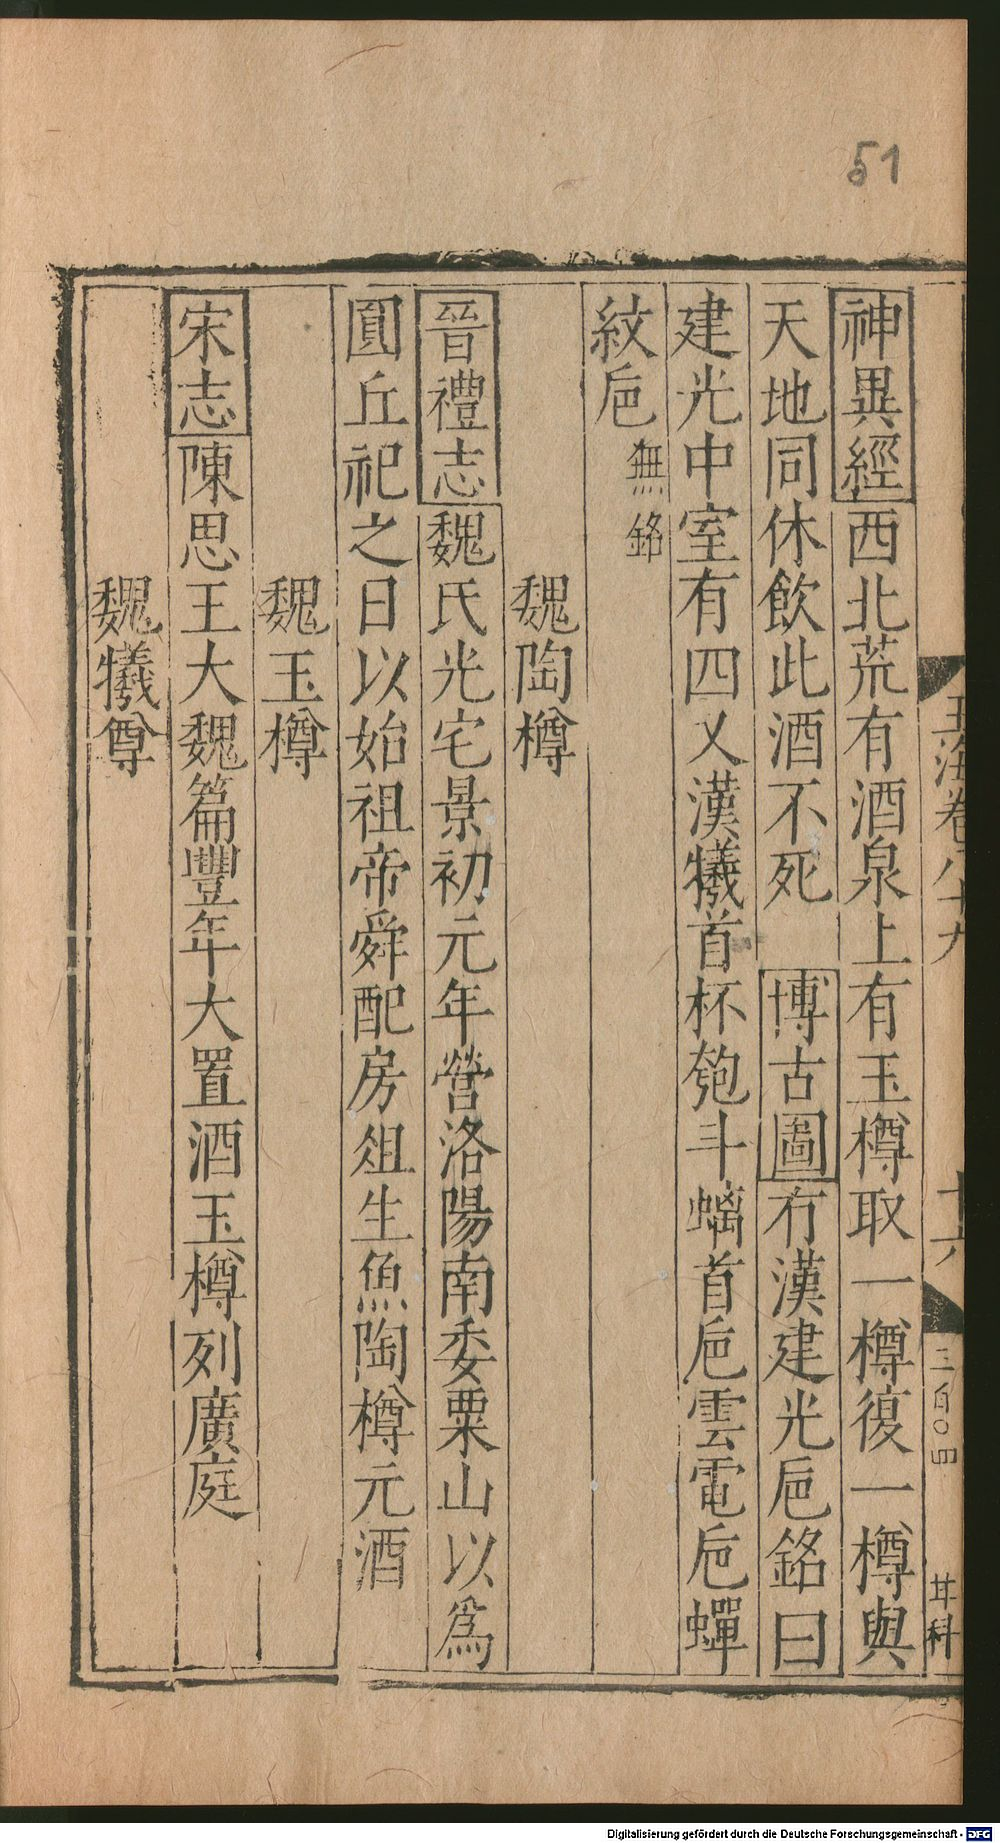 51
玉海卷八十九
十六
三百〇四
神異經西北荒有酒泉上有玉樽取一樽復一樽與
天地同休飲此酒不死 博古圖有漢建光巵銘曰
建光中室有四又漢犧首杯匏斗螭首巵雲電巵蟬
紋巵無銘
魏陶樽
晉禮志魏氏光宅景初元年營洛陽南委粟山以為
圓丘祀之日以始祖帝舜配房俎生魚陶樽元酒
魏玉樽
宋志陳思王大魏篇豐年大置酒玉樽列廣庭
魏犧尊
Digitalisierung gefördert durch die Deutsche Forschungsgemeinschaft - DFG